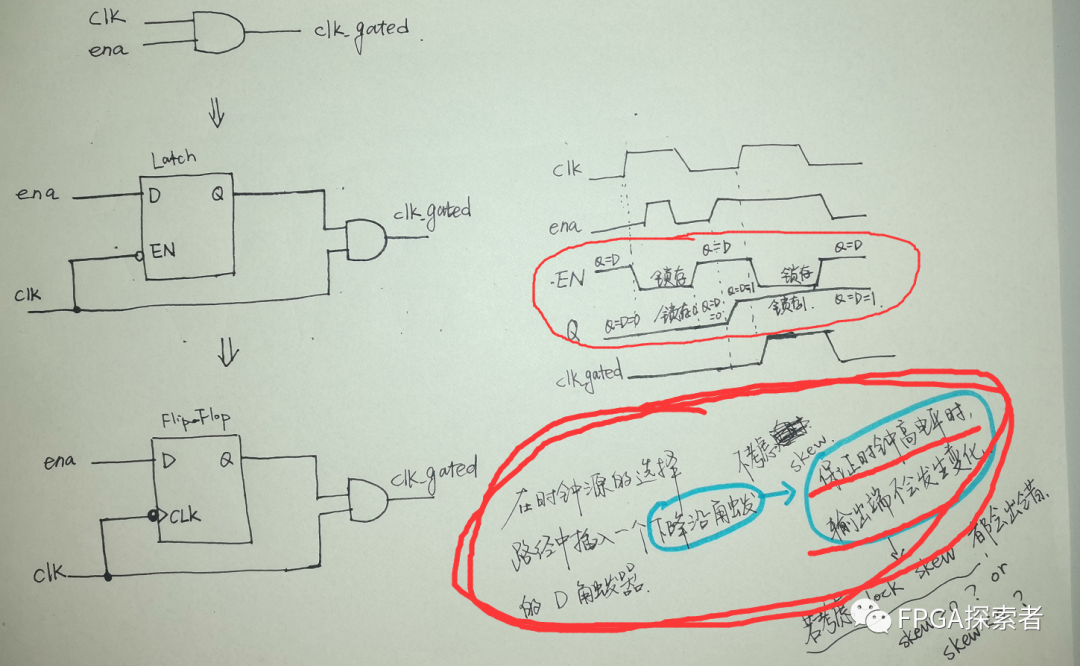 clk
ena
clk_gated.
⇓
Latch
ena
D
Q
EN
clk
clk_gated
⇓
Flip-Flop
ena
D
Q
CLK
clk
clk_gated
clk
ena
EN
Q=D
锁存
Q=D
锁存
Q=D
Q
Q=D=0
锁存0
Q=D
=0
Q=D=1
锁存1.
Q=D=1.
clk_gated
在时钟源的选择
路径中插入一个下降沿触发
的 D 触发器.
不考虑
skew.
保证时钟高电平时,
输出端不会发生变化.
若考虑 clock skew 都会出错.
skew>0? or
skew
FPGA探索者